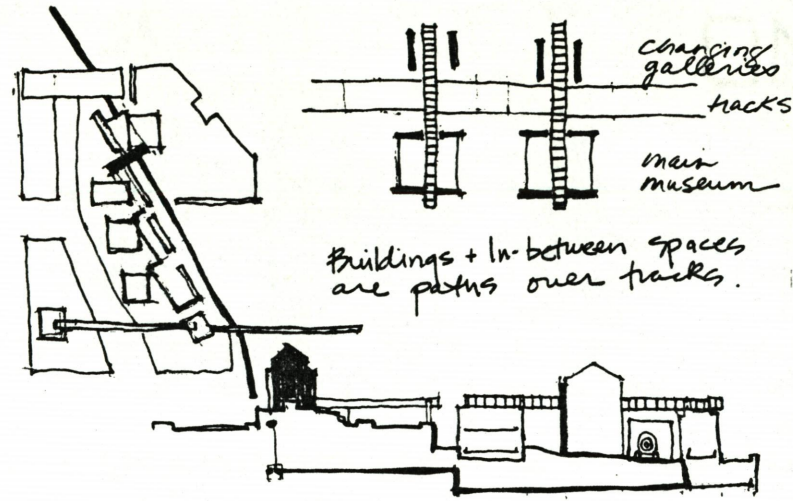 changing
galleries
tracks
main
museum
Buildings + In-between spaces
are paths over tracks.